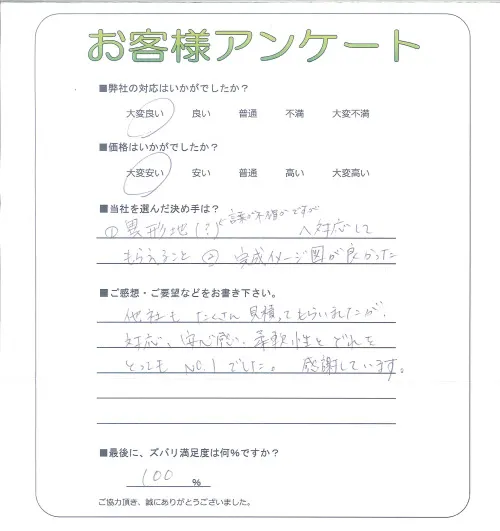 お客様アンケート
■弊社の対応はいかがでしたか？
大変良い 良い 普通 不満 大変不満
■価格はいかがでしたか？
大変安い 安い 普通 高い 大変高い
■当社を選んだ決め手は？
言葉が不確かですが
①異形地(?)へ対応して
もらえること ② 完成イメージ図が良かった
■ご感想・ご要望などをお書き下さい。
他社も たくさん 見積ってもらいましたが、
対応、安心感、柔軟性と どれを
とっても NO.1でした。 感謝しています。
■最後に、ズバリ満足度は何％ですか？
100 ％
ご協力頂き、誠にありがとうございました。